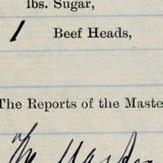 lbs. Sugar,
1 Beef Heads,
The Reports of the Maste
The